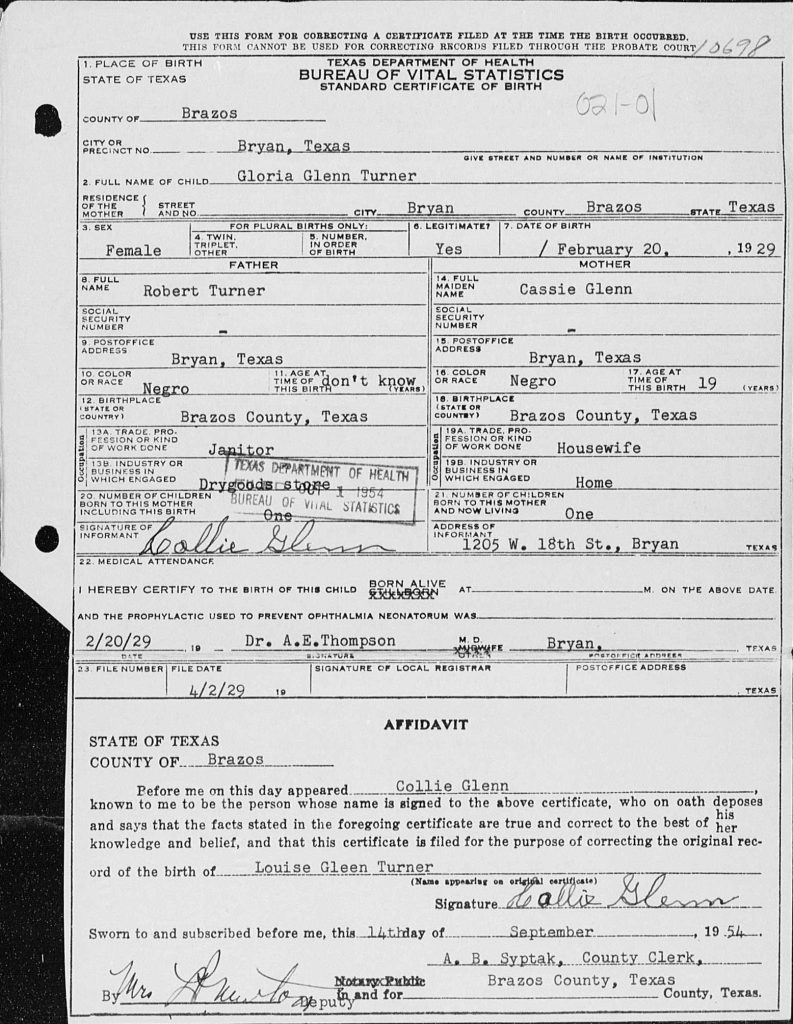 USE THIS FORM FOR CORRECTING A CERTIFICATE FILED AT THE TIME THE BIRTH OCCURRED.
THIS FORM CANNOT BE USED FOR CORRECTING RECORDS FILED THROUGH THE PROBATE COURT 10698
1. PLACE OF BIRTH
STATE OF TEXAS
TEXAS DEPARTMENT OF HEALTH
BUREAU OF VITAL STATISTICS
STANDARD CERTIFICATE OF BIRTH
021-01
COUNTY OF Brazos
CITY OR PRECINCT NO. Bryan, Texas
GIVE STREET AND NUMBER OR NAME OF INSTITUTION
2. FULL NAME OF CHILD Gloria Glenn Turner
RESIDENCE OF THE MOTHER { STREET AND NO. CITY Bryan COUNTY Brazos STATE Texas
3. SEX Female
FOR PLURAL BIRTHS ONLY:
4. TWIN, TRIPLET, OTHER
5. NUMBER, IN ORDER OF BIRTH
6. LEGITIMATE? Yes
7. DATE OF BIRTH / February 20, , 19 29
FATHER
8. FULL NAME Robert Turner
SOCIAL SECURITY NUMBER -
9. POSTOFFICE ADDRESS Bryan, Texas
10. COLOR OR RACE Negro
11. AGE AT TIME OF THIS BIRTH don't know (YEARS)
12. BIRTHPLACE (STATE OR COUNTRY) Brazos County, Texas
Occupation
13A. TRADE, PROFESSION OR KIND OF WORK DONE Janitor
13B. INDUSTRY OR BUSINESS IN WHICH ENGAGED Drygoods store
MOTHER
14. FULL MAIDEN NAME Cassie Glenn
SOCIAL SECURITY NUMBER -
15. POSTOFFICE ADDRESS Bryan, Texas
16. COLOR OR RACE Negro
17. AGE AT TIME OF THIS BIRTH 19 (YEARS)
18. BIRTHPLACE (STATE OR COUNTRY) Brazos County, Texas
Occupation
19A. TRADE, PROFESSION OR KIND OF WORK DONE Housewife
19B. INDUSTRY OR BUSINESS IN WHICH ENGAGED Home
TEXAS DEPARTMENT OF HEALTH
OCT 1 1954
BUREAU OF VITAL STATISTICS
20. NUMBER OF CHILDREN BORN TO THIS MOTHER INCLUDING THIS BIRTH One
21. NUMBER OF CHILDREN BORN TO THIS MOTHER AND NOW LIVING One
SIGNATURE OF INFORMANT Collie Glenn
ADDRESS OF INFORMANT 1205 W. 18th St., Bryan TEXAS
22. MEDICAL ATTENDANCE
I HEREBY CERTIFY TO THE BIRTH OF THIS CHILD BORN ALIVE STILLBORN AT M. ON THE ABOVE DATE
AND THE PROPHYLACTIC USED TO PREVENT OPHTHALMIA NEONATORUM WAS
2/20/29 19 Dr. A.E.Thompson M. D. MIDWIFE OTHER Bryan, TEXAS
DATE SIGNATURE POSTOFFICE ADDRESS
23. FILE NUMBER FILE DATE SIGNATURE OF LOCAL REGISTRAR POSTOFFICE ADDRESS
4/2/29 19 , TEXAS
AFFIDAVIT
STATE OF TEXAS
COUNTY OF Brazos
Before me on this day appeared Collie Glenn ,
known to me to be the person whose name is signed to the above certificate, who on oath deposes
and says that the facts stated in the foregoing certificate are true and correct to the best of his her
knowledge and belief, and that this certificate is filed for the purpose of correcting the original rec-
ord of the birth of Louise Gleen Turner
(Name appearing on original certificate)
Signature Collie Glenn
Sworn to and subscribed before me, this 14th day of September , 19 54.
A. B. Syptak, County Clerk,
Notary Public
Brazos County, Texas
By Mrs Deputy in and for County, Texas.